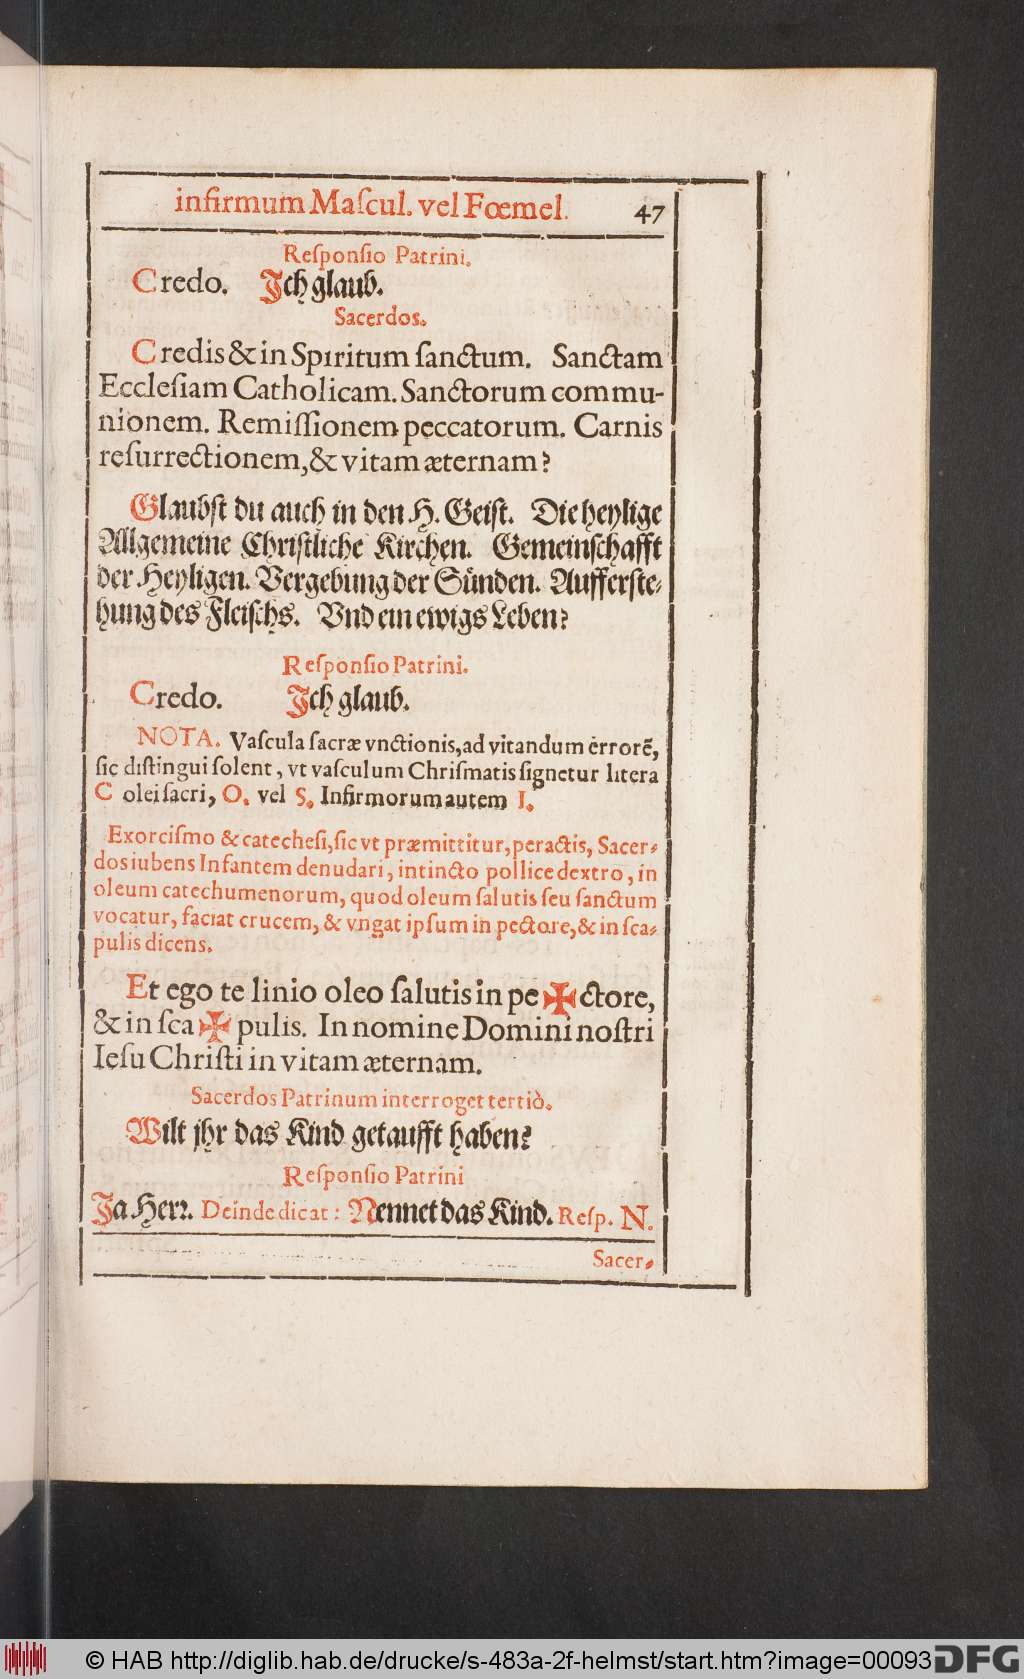 infirmum Maſcul. vel Fœmel. 47
Reſponſio Patrini.
Credo. Ich glaub.
Sacerdos.
Credis & in Spiritum ſanctum. Sanctam
Eccleſiam Catholicam. Sanctorum commu-
nionem. Remiſſionem peccatorum. Carnis
reſurrectionem, & vitam æternam?
Glaubſt du auch in den H. Geiſt. Die heylige
Allgemeine Chriſtliche Kirchen. Gemeinſchafft
der Heyligen. Vergebung der Sünden. Aufferſte-
hung des Fleiſchs. Vnd ein ewigs Leben?
Reſponſio Patrini.
Credo. Ich glaub.
NOTA. Vaſcula ſacræ vnctionis, ad vitandum errorẽ,
ſic diſtingui ſolent, vt vaſculum Chriſmatis ſignetur litera
C olei ſacri, O. vel S. Infirmorum autem I.
Exorciſmo & catecheſi, ſic vt præmittitur, peractis, Sacer-
dos iubens Infantem denudari, intincto pollice dextro, in
oleum catechumenorum, quod oleum ſalutis ſeu ſanctum
vocatur, faciat crucem, & vngat ipſum in pectore, & in ſca-
pulis dicens.
Et ego te linio oleo ſalutis in pe ✠ ctore,
& in ſca ✠ pulis. In nomine Domini noſtri
Ieſu Chriſti in vitam æternam.
Sacerdos Patrinum interroget tertiò.
Wilt jhr das Kind getaufft haben?
Reſponſio Patrini
Ja Herꝛ. Deinde dicat: Nennet das Kind. Reſp. N.
Sacer-
© HAB http://diglib.hab.de/drucke/s-483a-2f-helmst/start.htm?image=00093
DFG